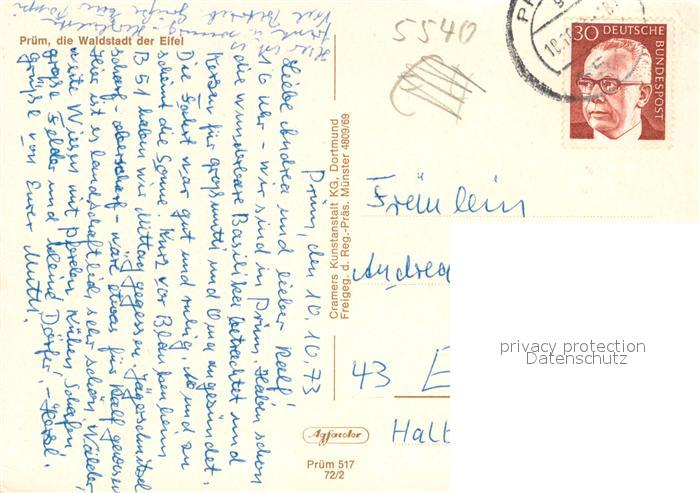 Prüm, die Waldstadt der Eifel
Prüm, den 10.10.73
Liebe Andrea und lieber Ralf!
16 Uhr - wir sind in Prüm. Haben schon
die wunderbare Basilika betrachtet und
Kerzen für Großmutti und Oma angezündet.
Die Fahrt war gut und ruhig. Ab und zu
scheint die Sonne. Kurz vor Blankenheim
B 51 haben wir Mittag gegessen. Jägerschnitzel
scharf - oberscharf - wäre etwas für Ralf gewesen
Hier ist es landschaftlich sehr schön. Wälder,
weite Wiesen mit Pferden, Kühen, Schafen
große Felder und kleine Dörfer. - Herzl.
Grüße von Eurer Mutti.
Cramers Kunstanstalt KG, Dortmund
Freigeg. d. Reg.-Präs. Münster 4809/69
Agfacolor
Prüm 517
72/2
5540
30 DEUTSCHE
BUNDESPOST
Fräulein
Andrea
43 E
Halb
privacy protection
Datenschutz